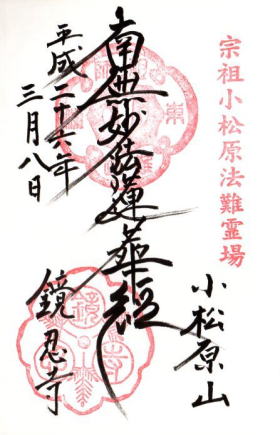 宗祖小松原法難霊場
小松原山
南無妙法蓮華経
鏡忍寺
平成二十六年
三月八日